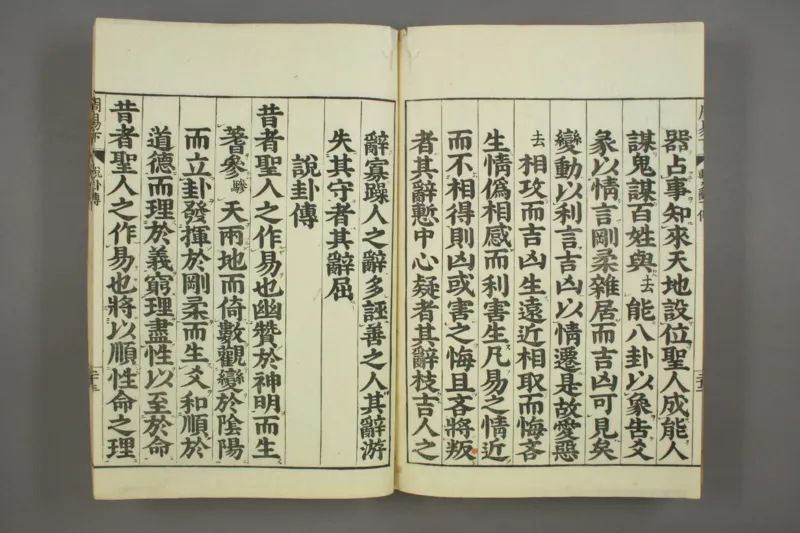 器占事知來天地設位聖人成能人
謀鬼謀百姓與去能八卦以象告爻
彖以情言剛柔雜居而吉凶可見矣
變動以利言吉凶以情遷是故愛惡
去相攻而吉凶生遠近相取而悔吝
生情僞相感而利害生凡易之情近
而不相得則凶或害之悔且吝將叛
者其辭慙中心疑者其辭枝吉人之
辭寡躁人之辭多誣善之人其辭游
失其守者其辭屈
說卦傳
昔者聖人之作易也幽贊於神明而生
蓍參天兩地而倚數觀變於陰陽
而立卦發揮於剛柔而生爻和順於
道德而理於義窮理盡性以至於命
昔者聖人之作易也將以順性命之理
周易下
說卦傳